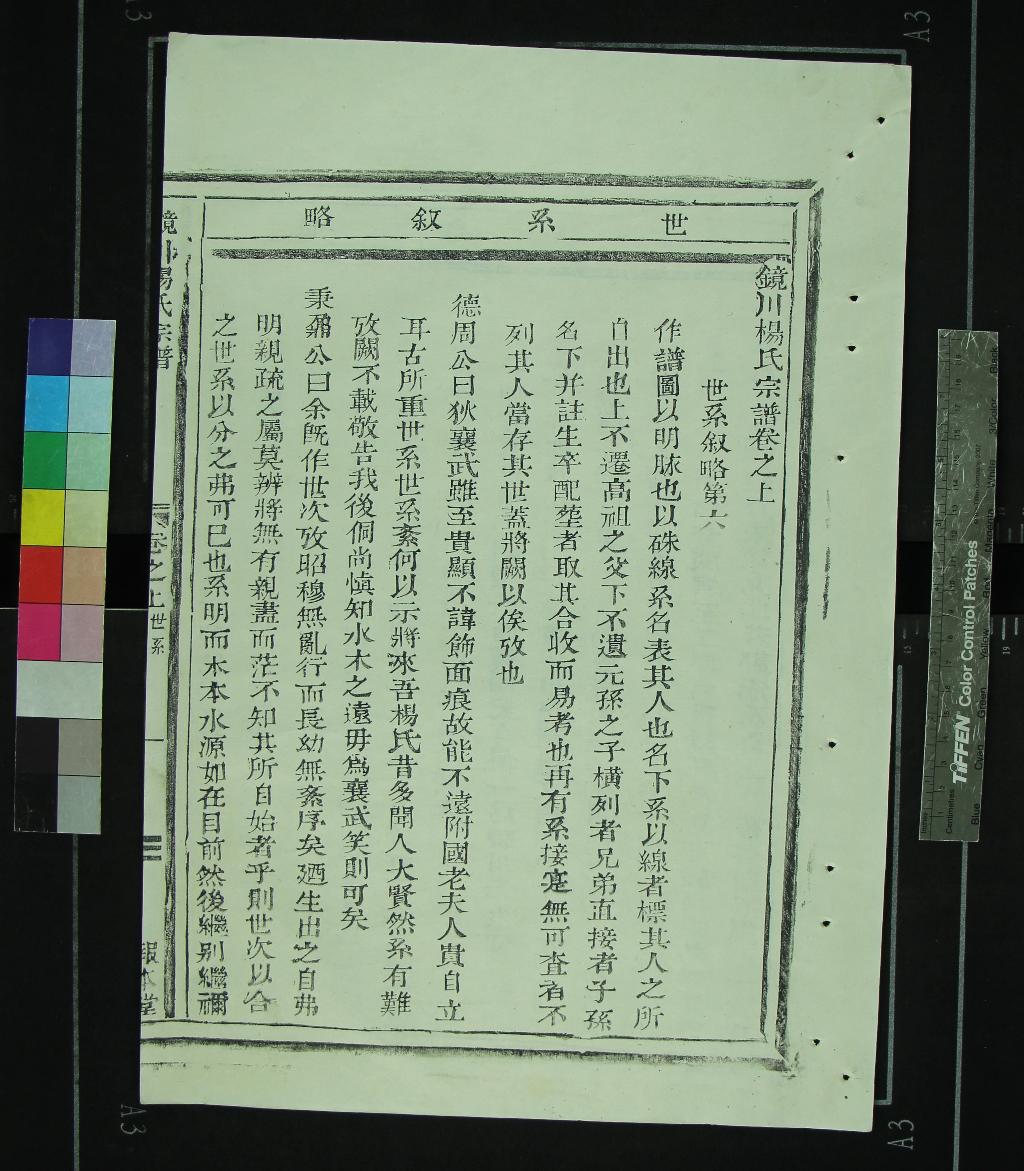 世系叙略
鏡川楊氏宗譜卷之上
世系叙略第六
作譜圖以明脉也以硃線系名表其人也名下系以線者標其人之所
自出也上不遷高祖之父下不遺元孫之子横列者兄弟直接者子孫
名下并註生卒配塟者取其合收而易考也再有系接寔無可查者不
列其人當存其世蓋將闕以俟攷也
德周公曰狄襄武雖至貴顯不諱飾面痕故能不遠附國老夫人貴自立
耳古所重世系世系紊何以示將來吾楊氏昔多聞人大賢然系有難
攷闕不載敬告我後侗尚慎知水木之遠毋爲襄武笑則可矣
秉鼐公曰余旣作世次攷昭穆無亂行而長幼無紊序矣廼生出之自弗
明親疏之屬莫辨將無有親盡而茫不知其所自始者乎則世次以合
之世系以分之弗可已也系明而木本水源如在目前然後繼别繼禰
鏡川楊氏宗譜
卷之上世系
報本堂
A3
A3
A3
A3
TIFFEN Color Control Patches
Centimetres
Blue
Cyan
Green
Yellow
Red
Magenta
White
3/Color
Black